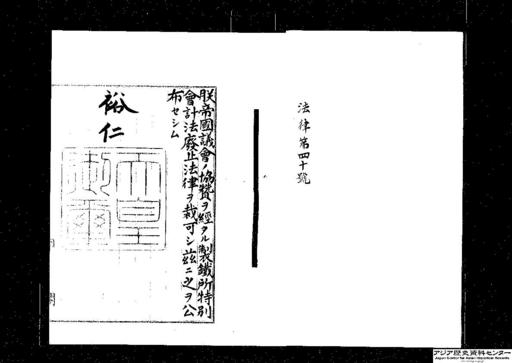 法律第四十號
朕帝國議會ノ協贊ヲ經タル製鐵所特別
會計法廢止法律ヲ裁可シ茲ニ之ヲ公
布セシム
裕仁
天皇御璽
アジア歴史資料センター
Japan Center for Asian Historical Records